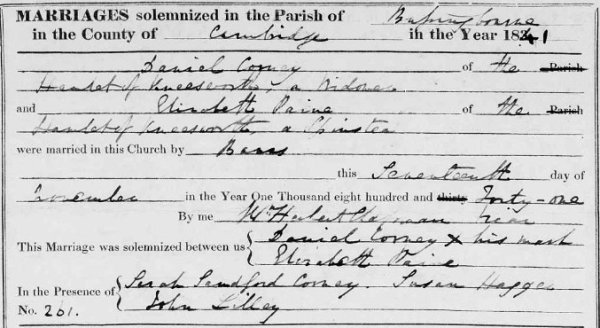 MARRIAGES solemnized in the Parish of Bassingbourne
in the County of Cambridge in the Year 1841
Daniel Corney of the Parish
Hamlet of Kneesworth, a Widower
and Elizabeth Paine of the Parish
Hamlet of Kneesworth, a Spinster
were married in this Church by Banns
this Seventeenth day of
November in the Year One Thousand eight hundred and thirty Forty-one
By me Wm Herbert Chapman Vicar
This Marriage was solemnized between us { Daniel Corney x his mark
Elizabeth Paine
In the Presence of { Sarah Sandford Corney. Susan Hagger
John Lilley
No. 261.